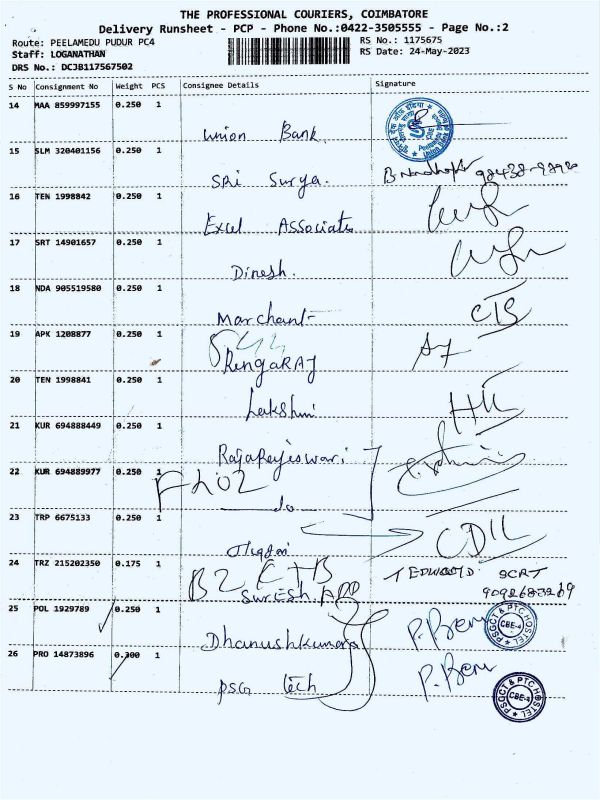 THE PROFESSIONAL COURIERS, COIMBATORE
Delivery Runsheet - PCP - Phone No.:0422-3505555 - Page No.:2
Route: PEELAMEDU PUDUR PC4
RS No.: 1175675
Staff: LOGANATHAN
RS Date: 24-May-2023
DRS No.: DCJB117567502
S No Consignment No Weight PCS Consignee Details Signature
14 MAA 859997155 0.250 1
Union Bank
15 SLM 320401156 0.250 1
Sri Surya.
16 TEN 1998842 0.250 1
Excel Associates
17 SRT 14901657 0.250 1
Dinesh.
18 NDA 905519580 0.250 1
Marchant
CTS
19 APK 1208877 0.250 1
RengaRAJ
20 TEN 1998841 0.250 1
Lakshmi
21 KUR 694888449 0.250 1
RajaRajeswari
22 KUR 694889977 0.250 1
F202
do
23 TRP 6675133 0.250 1
24 TRZ 215202350 0.175 1
B2
SURESH
T EDWARD
25 POL 1929789 0.250 1
Dhanushkumar
P. Beni
PSGCT & PTC HOSTEL CBE-4
26 PRO 14873896 0.300 1
PSG tech
P. Beni
PSGCT & PTC HOSTEL CBE-4